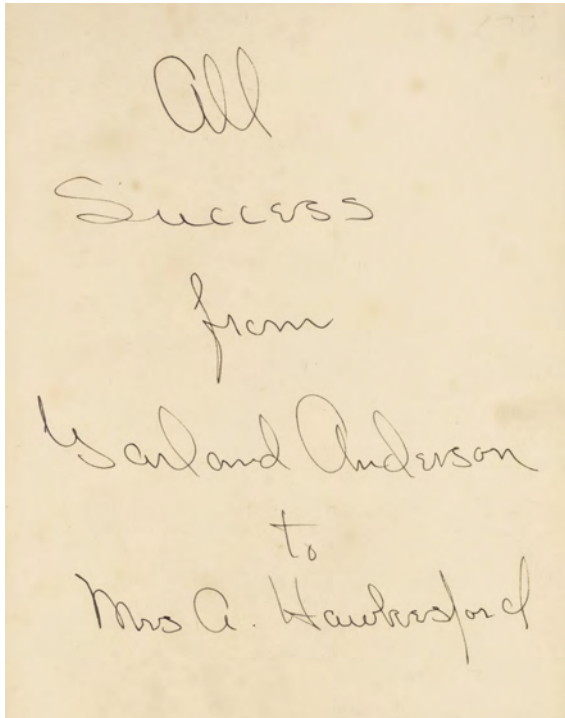 All
Success
from
Garland Anderson
to
Mrs A. Hawkesford